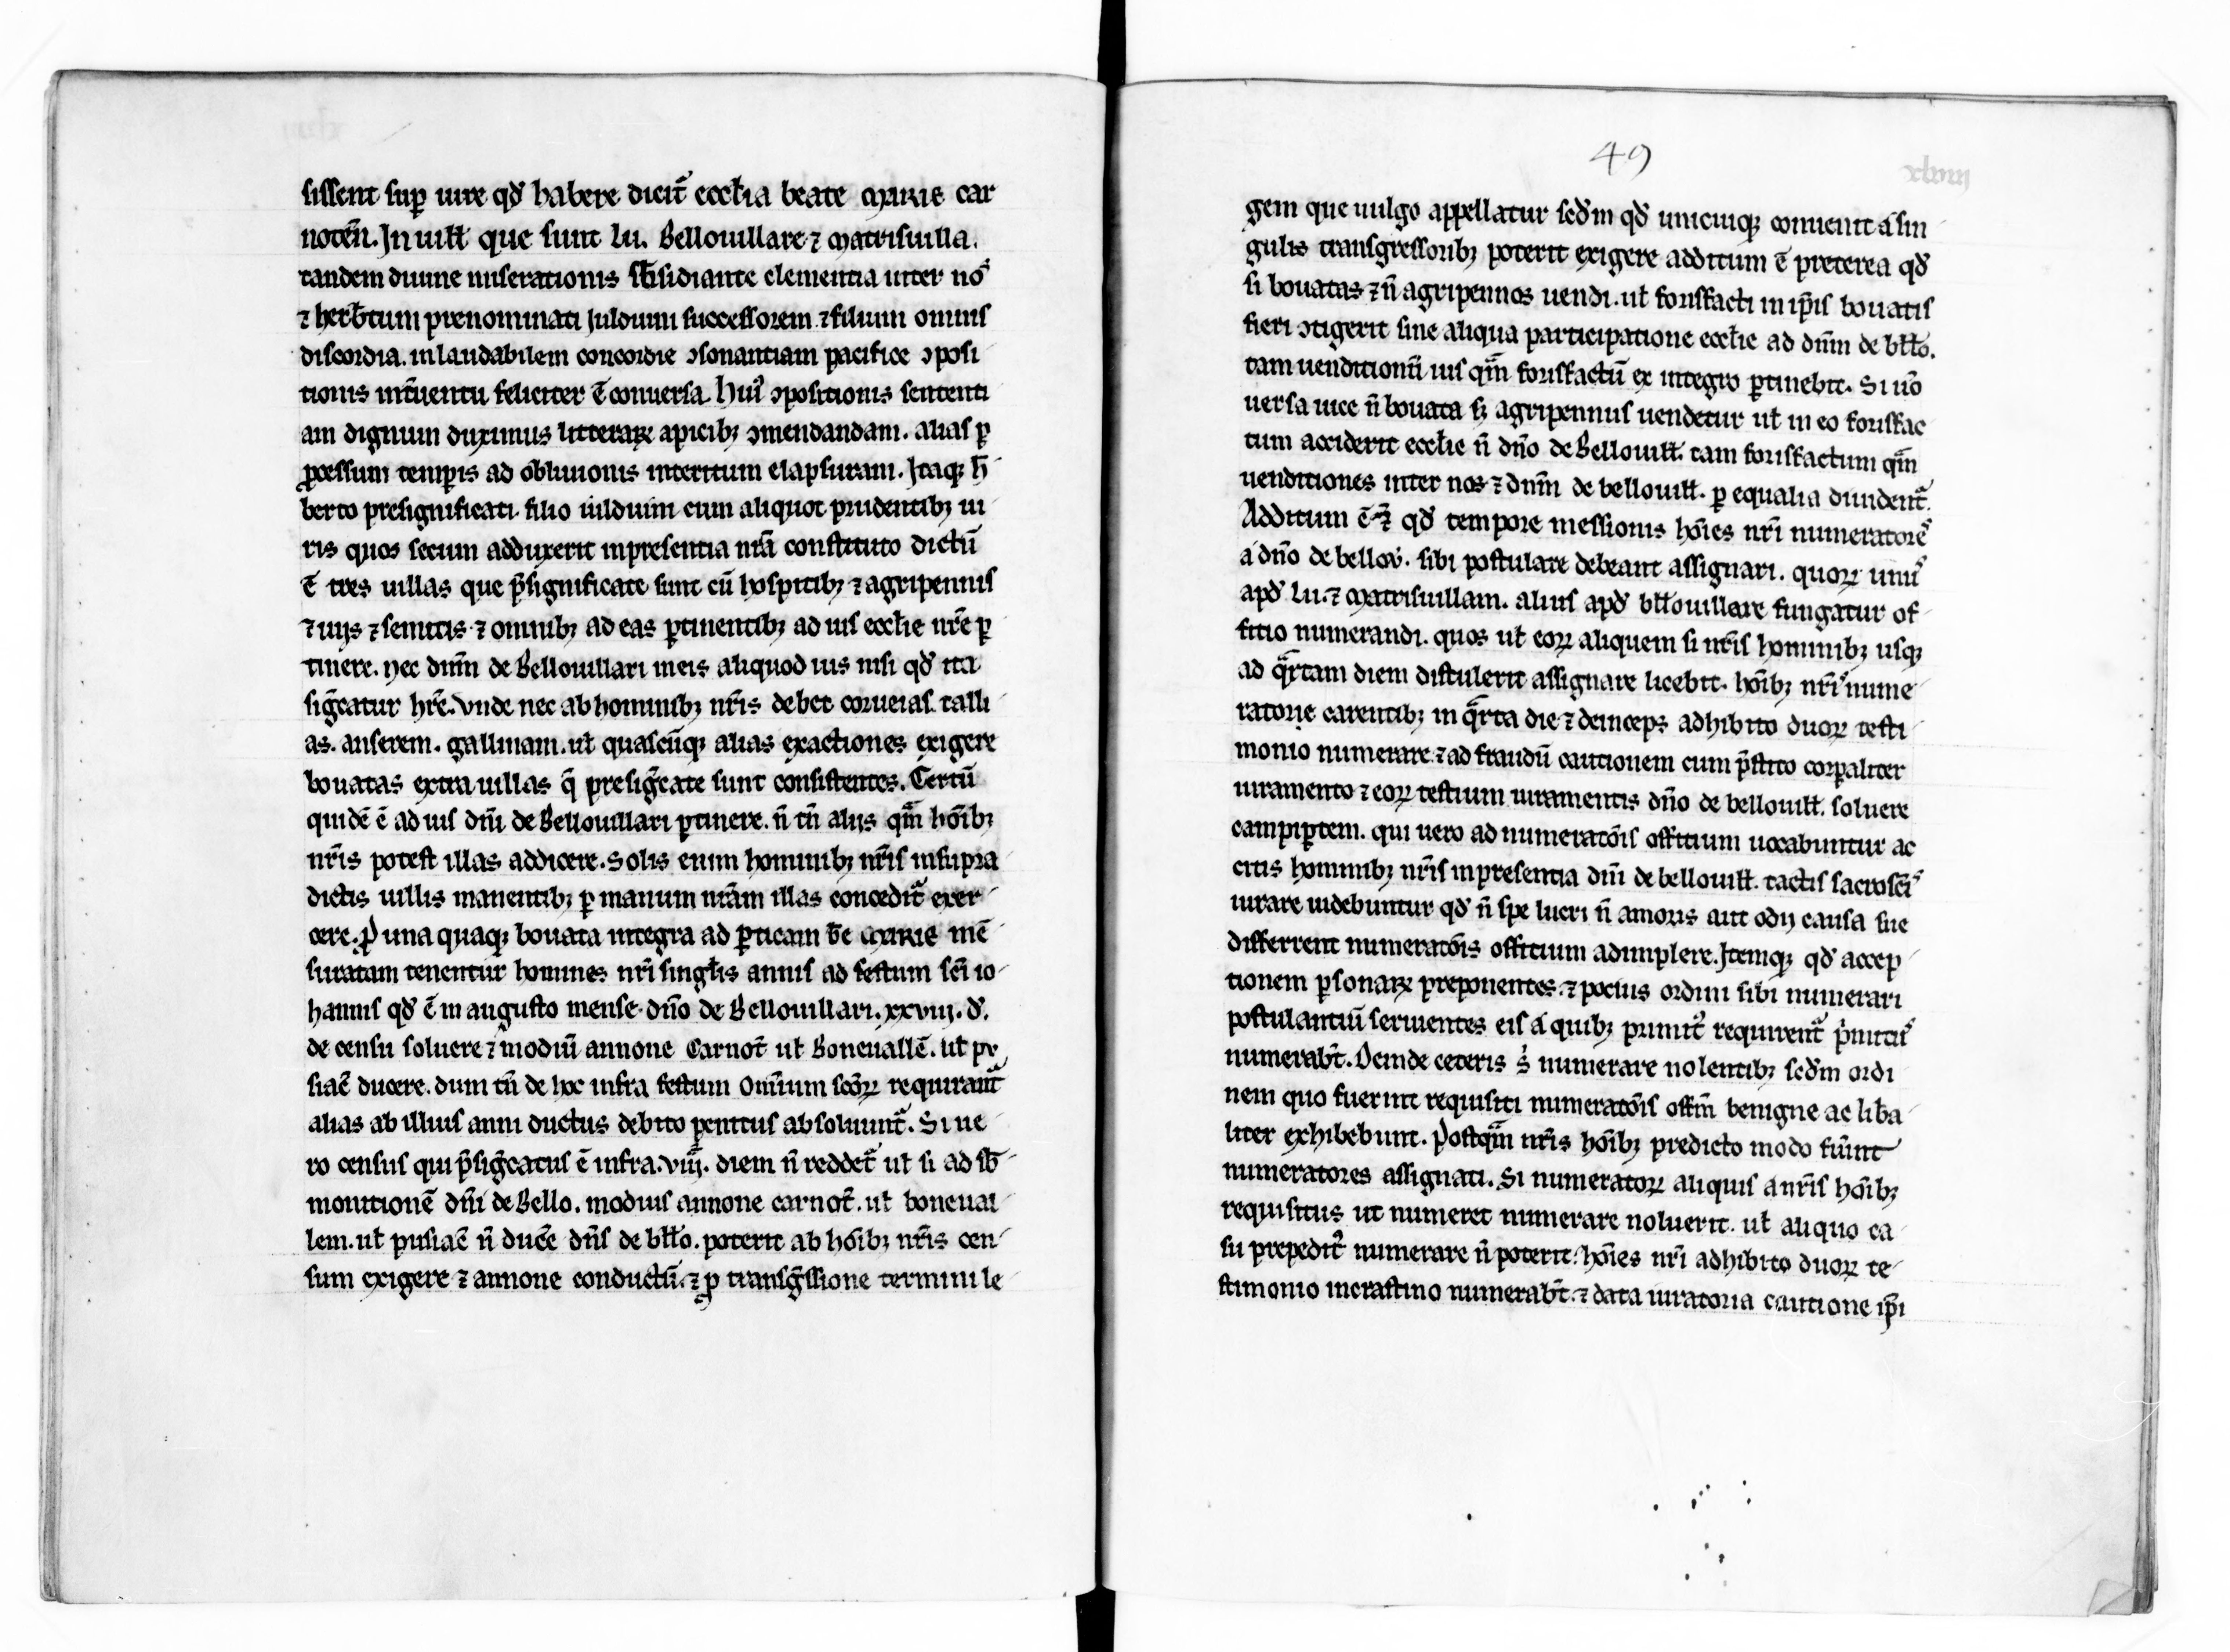 sissent sup̲ iure qd̛ habere dicit᷑ eccl̄ia beate MARIE car
noten̄. In uill̄ que sunt lu. Bellouillare ⁊ Matrisuilla.
tandem diuine miserationis sb̄sidiante clementia inter nos
⁊ herb̄tum prenominati Julduini successorem ⁊ filium omnis
discordia. in laudabilem concordie ↄsonantiam pacifice ↄposi
tionis int̄uentu feliciter ē conuersa. Huiꝰ ↄpositionis sententi
am dignum duximus litteraꝝ apicibꝫ ↄmendandam. alias ꝑ
ꝓcessum temꝑis ad obliuionis interitum elapsuram. Itaqꝫ h̄
berto presignificati filio iulduini cum aliquot prudentibꝫ ui
ris quos secum adduxerit in presentia nr̄a constituto dictū
ē tres uillas que p̄significate sunt cū hospitibꝫ ⁊ agripennis
⁊ uijs ⁊ semitis ⁊ omnibꝫ ad eas ꝑtinentibꝫ ad ius eccl̄ie nr̄e ꝑ
tinere. nec dnm̄ de Bellouillari in eis aliquod ius nisi qd̛ ita
sigc̄atur hr̄e. Vnde nec ab hominibꝫ nr̄is debet corueias. talli
as. anserem. gallinam. ut̄ quascūqꝫ alias exactiones exigere
bouatas extra uillas q̄ presigc̄ate sunt consistentes. Certū
quidē ē ad ius dn̄i de Bellouillari ꝑtinere. n̄ tn̄ alijs qm̄ hoībꝫ
nr̄is potest illas addicere. Solis enim hominibꝫ nr̄is in supra
dictis uillis manentibꝫ ꝑ manum nr̄am illas concedit᷑ exer
cere. P̱ una quaqꝫ bouata integra ad ꝑticam bē MARIE mē
suratam tenentur homines nr̄i singl̄is annis ad festum sc̄i io
hannis qd̛ ē in augusto mense. dn̄o de Bellouillari. xxviij. d̛.
de censu soluere ⁊ modiū annone Carnot̄ ut̄ Boneuallē. ut̄ pu
siac̄ ducere. dum tn̄ de hoc infra festum Omium sc̄oꝝ requirant᷑
alias ab illius anni ductus debito penitus absoluunt᷑. Si ue
ro census qui p̄sigc̄atus ē infra. viij. diem n̄ reddet᷑ ut̄ si ad sb̄
monitionē dn̄i de Bello. modius annone carnot̄. ut̄ boneual
lem. ut̄ pusiac̄ n̄ duc̄e dn̄s de bll̄o. poterit ab hoībꝫ nr̄is cen
sum exigere ⁊ annone conductū. ⁊ ꝓ transgressione termini le
49
xlviij
gem que uulgo appellatur scd̄m qd̛ unicuiqꝫ conuenit a sin
gulis transgressoribꝫ poterit exigere additum ē preterea qd̛
si bouatas ⁊ n̄ agripennos uendi. ut̄ forisfacti in ip̄is bouatis
fieri ↄtigerit sine aliqua participatione eccl̄ie ad dnm̄ de bll̄o.
tam uenditionū ius qm̄ forisfactū ex integro ꝑtinebit. Si uo
uersa uice n̄ bouata sꝫ agripennus uendetur ut̄ in eo forisfac
tum acciderit eccl̄ie n̄ dn̄o de Bellouill̄. tam forisfactum qm̄
uenditiones inter nos ⁊ dnm̄ de bellouill̄. ꝑ equalia diuident᷑.
Additum ē ⁊ qd̛ tempore messionis hoīes nr̄i numeratores
a dn̄o de bellov. sibi postulare debeant assignari. quoꝝ unus
apd̛ lu. ⁊ Matrisuillam. alius apd̛ bll̄ouillare fungatur of
fitio numerandi. quos ut̄ eoꝝ aliquem si nr̄is hominibꝫ usqꝫ
ad qr̄tam diem distulerit assignare licebit. hoībꝫ nr̄is nume
ratorie carentibꝫ in qr̄ta die ⁊ deinceps adhibito duoꝝ testi
monio numerare. ⁊ ad fraudū cautionem cum p̄stito corꝑaliter
iuramento ⁊ eoꝝ testium iuramentis dn̄o de bellouill̄. soluere
campiꝑtem. qui uero ad numeratōis offitium uocabuntur ac
citis hominibꝫ nr̄is in presentia dn̄i de bellouill̄. tactis sacrosc̄is
iurare uidebuntur qd̛ n̄ spe lucri n̄ amoris aut odij causa sue
differrent numeratōis offitium adimplere. Itemqꝫ qd̛ accep
tionem ꝑsonaꝝ preponentes. ⁊ pocius ordini sibi numerari
postulantiū seruientes eis a quibꝫ primit᷑ requirent᷑ p̄mitis
numerabt̄. Deinde ceteris s; numerare nolentibꝫ scd̄m ordi
nem quo fuerint requisiti numeratōis offm̄ benigne ac lib̄a
liter exhibebunt. Postqm̄ nr̄is hoībꝫ predicto modo fūint
numeratores assignati. Si numeratoꝝ aliquis a nr̄is hoībꝫ
requisitus ut numeret numerare noluerit. ut̄ aliquo ca
su prepedit᷑ numerare n̄ poterit. hoīes nr̄i adhibito duoꝝ te
stimonio incrastino numerabt̄. ⁊ data iuratoria cautione ip̄i